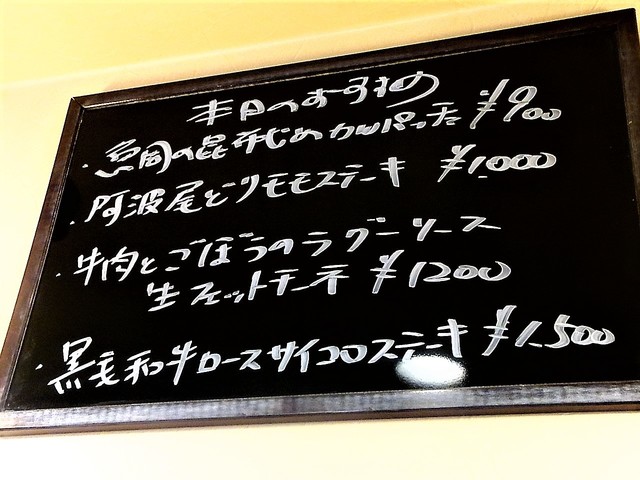 本日のおすすめ
・鯛の昆布じめカルパッチョ ¥900
・阿波尾どりモモステーキ ¥1,000
・牛肉とごぼうのラグーソース
生フェットチーネ ¥1200
・黒毛和牛ロースサイコロステーキ ¥1,500